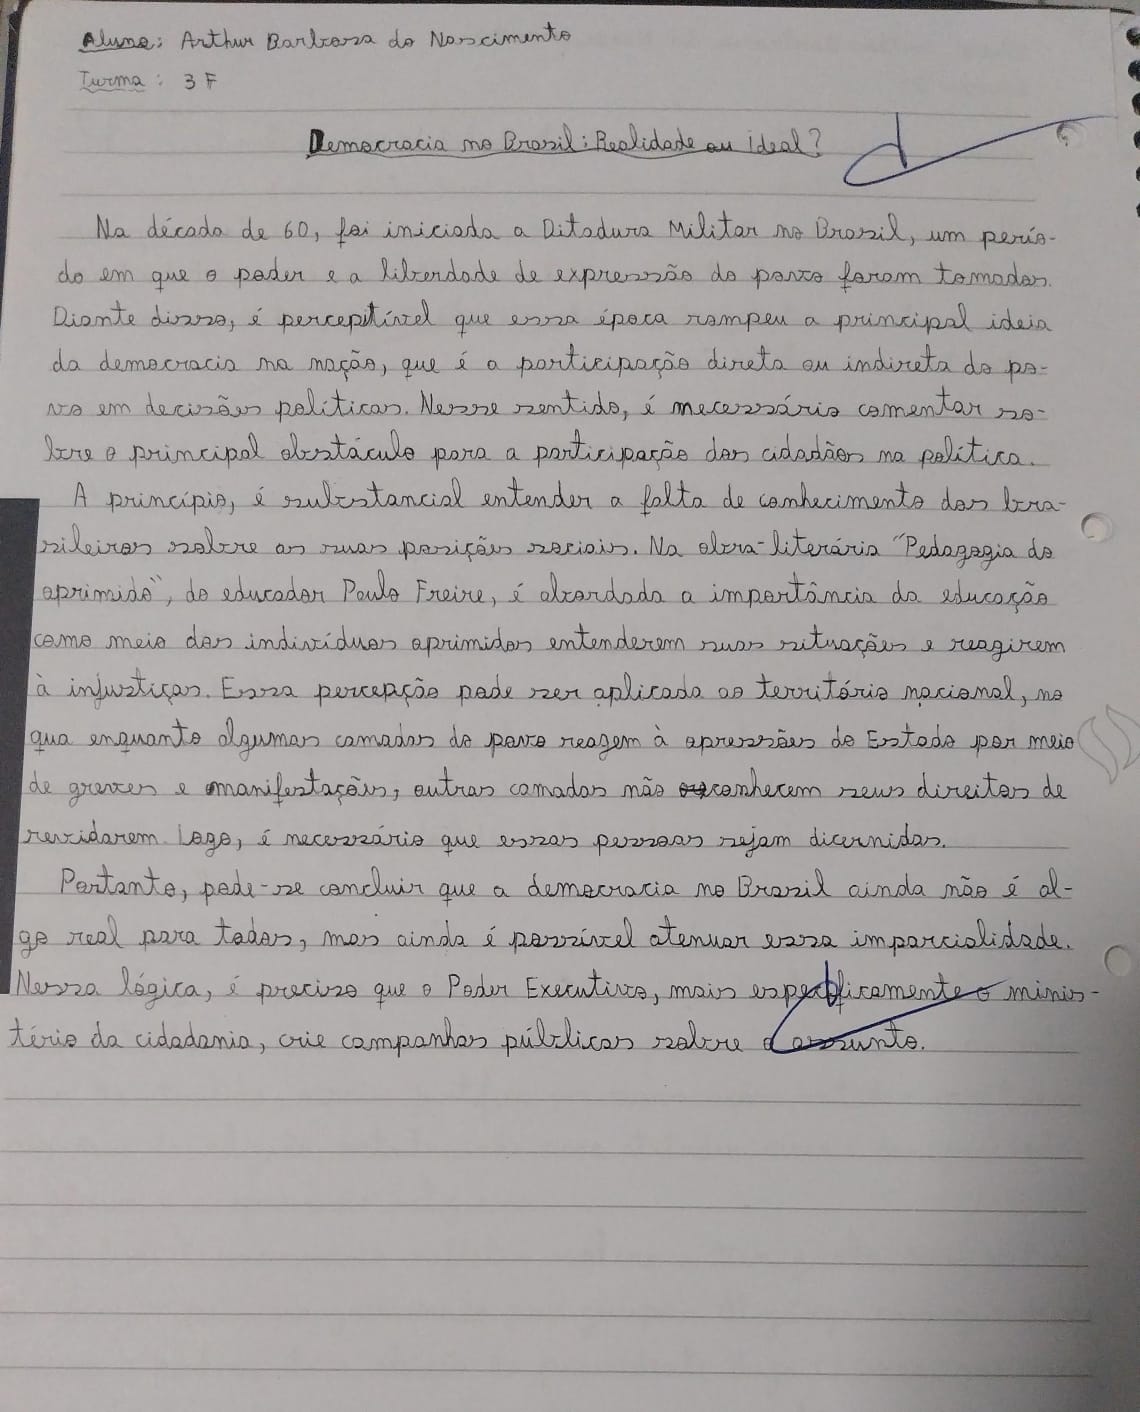 Aluno: Arthur Barboza do Nascimento
Turma: 3 F
Democracia no Brasil: Realidade ou ideal?
Na década de 60, foi iniciada a Ditadura Militar no Brasil, um perío-
do em que o poder e a liberdade de expressão do povo foram tomados.
Diante disso, é perceptível que essa época rompeu a principal ideia
da democracia na nação, que é a participação direta ou indireta do po-
vo em decisões políticas. Nesse sentido, é necessário comentar so-
bre o principal obstáculo para a participação dos cidadãos na política.
A princípio, é substancial entender a falta de conhecimento dos bra-
sileiros sobre as suas posições sociais. Na obra-literária "Pedagogia do
oprimido", do educador Paulo Freire, é abordada a importância da educação
como meio dos indivíduos oprimidos entenderem suas situações e reagirem
à injustiças. Essa percepção pode ser aplicada ao território nacional, no
qua enquanto algumas camadas do povo reagem à opressões do Estado por meio
de greves e manifestações, outras camadas não conhecem seus direitos de
revidarem. Logo, é necessário que essas pessoas sejam dicernidas.
Portanto, pode-se concluir que a democracia no Brasil ainda não é al-
go real para todos, mas ainda é possível atenuar essa imparcialidade.
Nessa lógica, é preciso que o Poder Executivo, mais especificamente o minis-
tério da cidadania, crie campanhas públicas sobre o assunto.